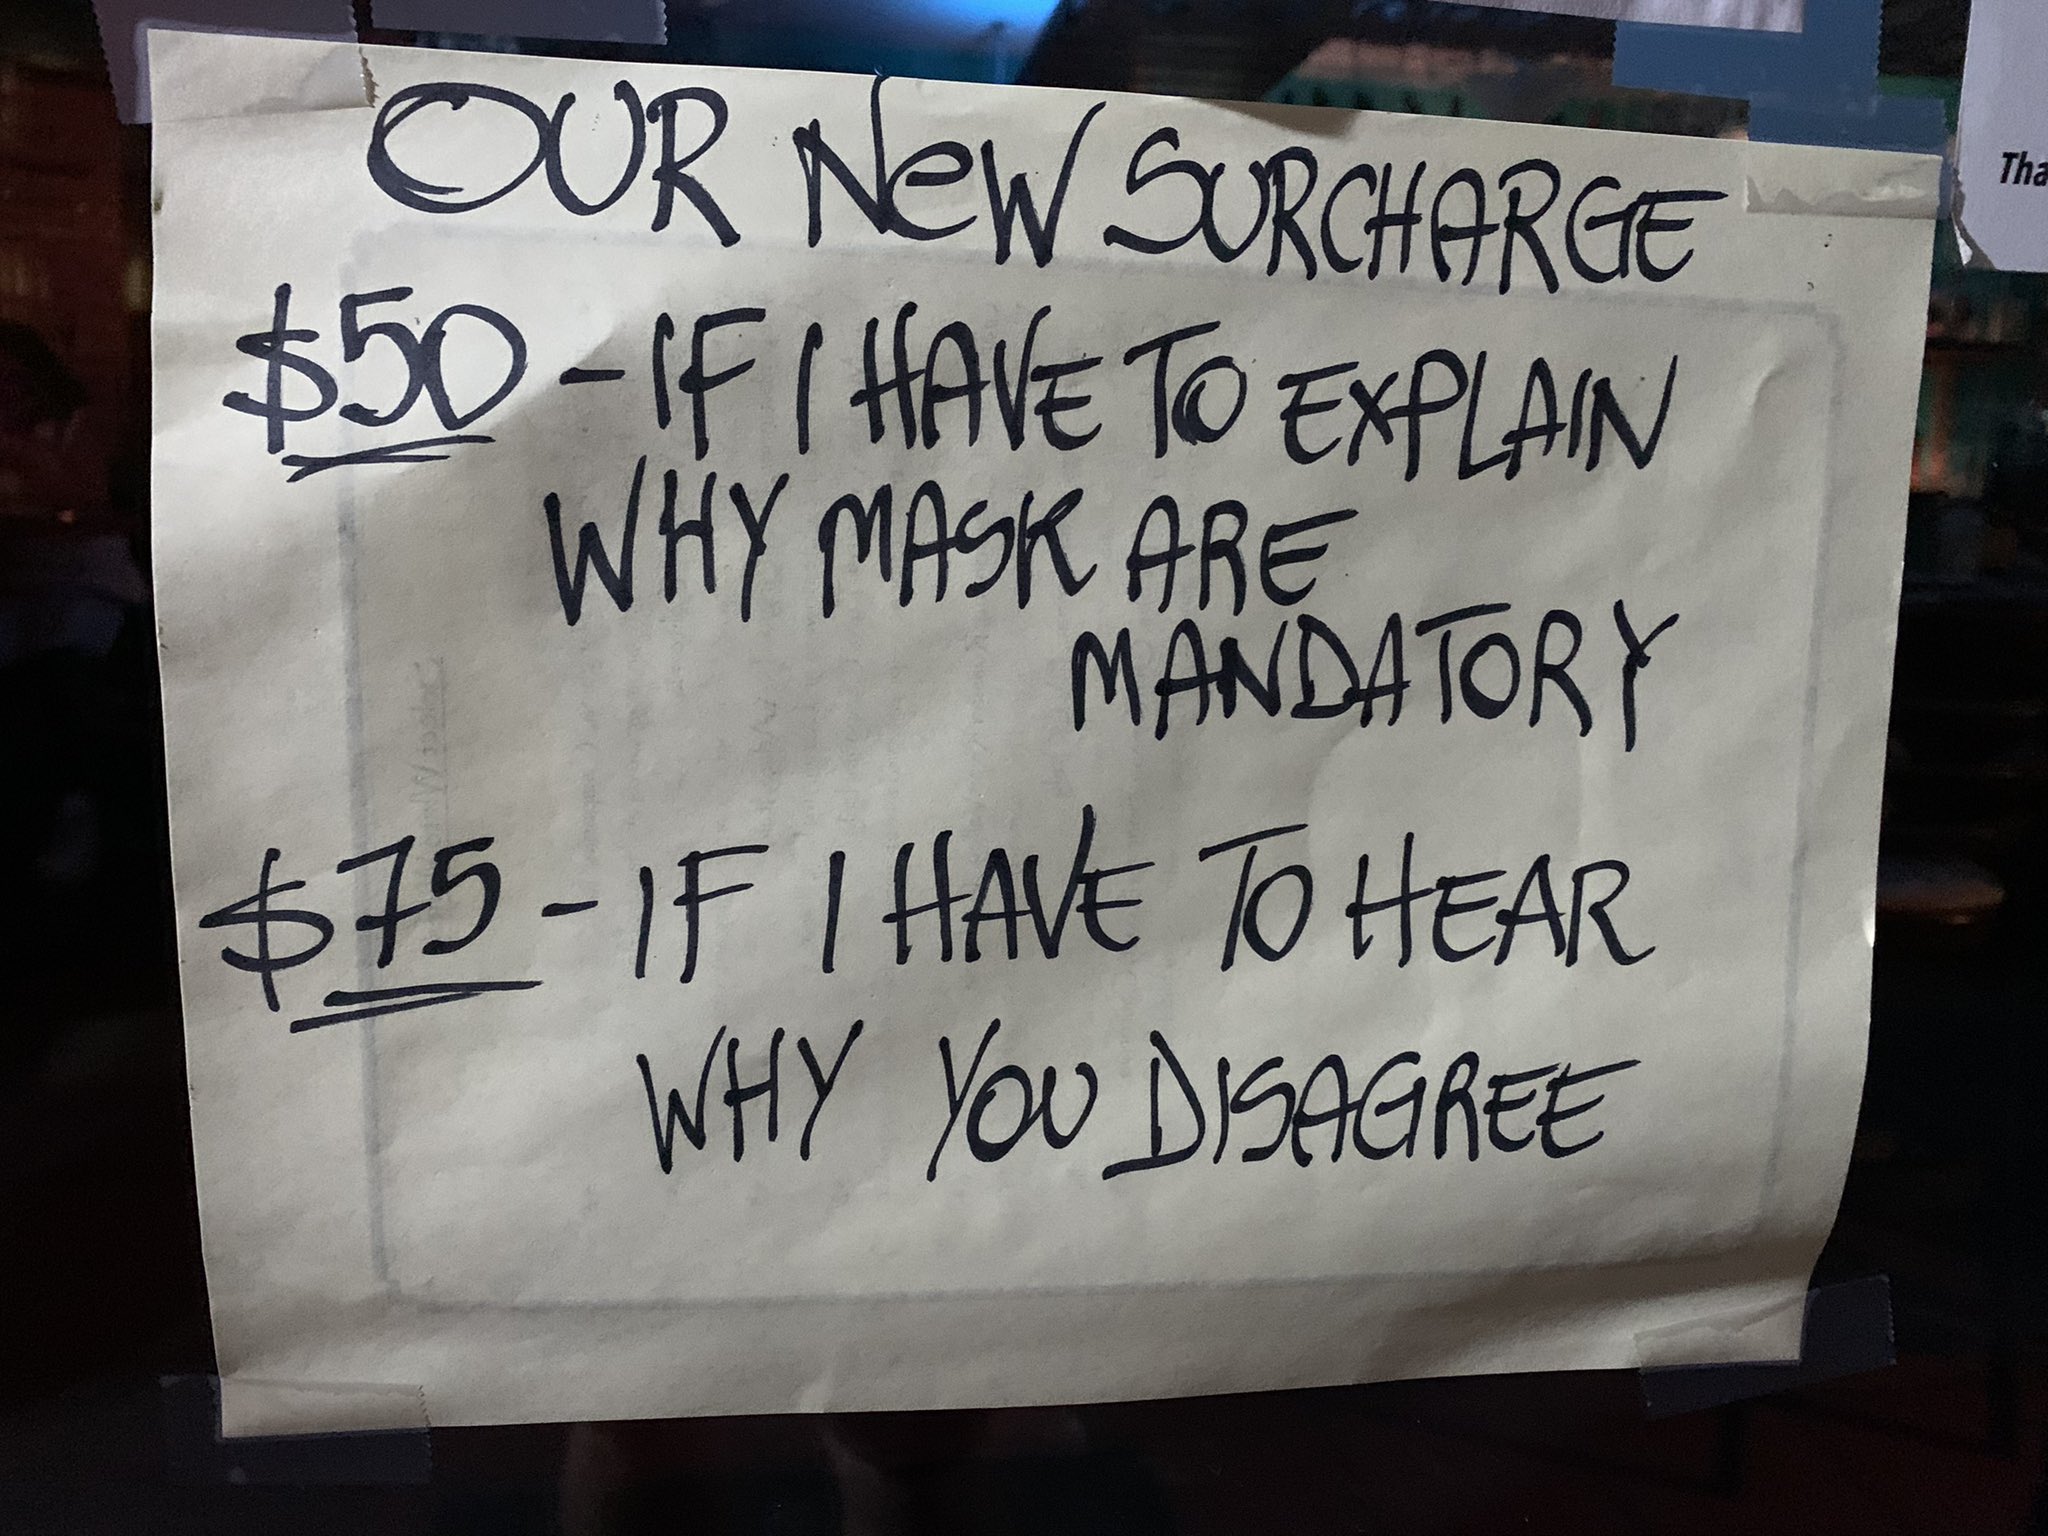 OUR NeW SURCHARGE
$50 - IF I HAVE TO EXPLAIN
WHY MASK ARE
MANDATORY
$75 - IF I HAVE TO HEAR
WHY YOU DISAGREE